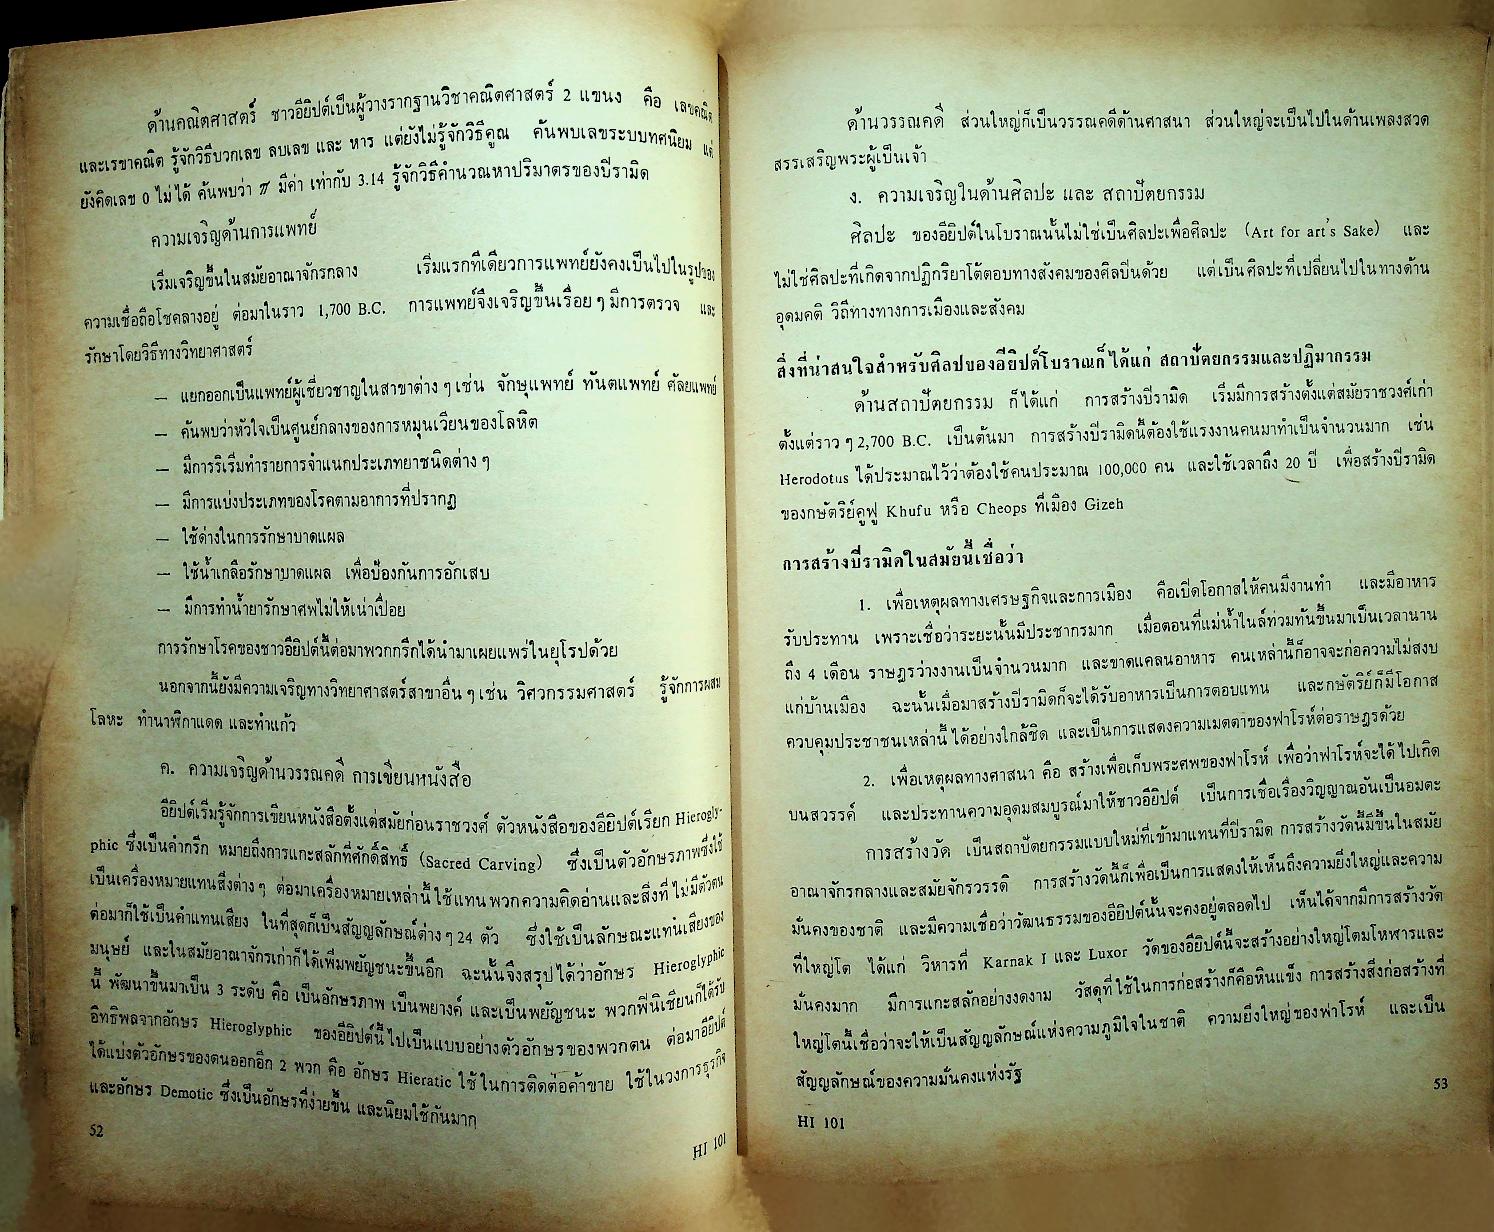 ด้านคณิตศาสตร์ ชาวอียิปต์เป็นผู้วางรากฐานวิชาคณิตศาสตร์ 2 แขนง คือ เลขคณิต
และเรขาคณิต รู้จักวิธีบวกเลข ลบเลข และ หาร แต่ยังไม่รู้จักวิธีคูณ ค้นพบเลขระบบทศนิยม แต่
ยังคิดเลข 0 ไม่ได้ ค้นพบว่า π มีค่า เท่ากับ 3.14 รู้จักวิธีคำนวณหาปริมาตรของปิรามิด
ความเจริญด้านการแพทย์
เริ่มเจริญขึ้นในสมัยอาณาจักรกลาง เริ่มแรกทีเดียวการแพทย์ยังคงเป็นไปในรูปของ
ความเชื่อถือโชคลางอยู่ ต่อมาในราว 1,700 B.C. การแพทย์จึงเจริญขึ้นเรื่อย ๆ มีการตรวจ และ
รักษาโดยวิธีทางวิทยาศาสตร์
— แยกออกเป็นแพทย์ผู้เชี่ยวชาญในสาขาต่าง ๆ เช่น จักษุแพทย์ ทันตแพทย์ ศัลยแพทย์
— ค้นพบว่าหัวใจเป็นศูนย์กลางของการหมุนเวียนของโลหิต
— มีการริเริ่มทำรายการจำแนกประเภทยาชนิดต่าง ๆ
— มีการแบ่งประเภทของโรคตามอาการที่ปรากฏ
— ใช้ด่างในการรักษาบาดแผล
— ใช้น้ำเกลือรักษาบาดแผล เพื่อป้องกันการอักเสบ
— มีการทำน้ำยารักษาศพไม่ให้เน่าเปื่อย
การรักษาโรคของชาวอียิปต์นี้ต่อมาพวกกรีกได้นำมาเผยแพร่ในยุโรปด้วย
นอกจากนี้ยังมีความเจริญทางวิทยาศาสตร์สาขาอื่น ๆ เช่น วิศวกรรมศาสตร์ รู้จักการผสม
โลหะ ทำนาฬิกาแดด และทำแก้ว
ค. ความเจริญด้านวรรณคดี การเขียนหนังสือ
อียิปต์เริ่มรู้จักการเขียนหนังสือตั้งแต่สมัยก่อนราชวงศ์ ตัวหนังสือของอียิปต์เรียก Hierogly-
phic ซึ่งเป็นคำกรีก หมายถึงการแกะสลักที่ศักดิ์สิทธิ์ (Sacred Carving) ซึ่งเป็นตัวอักษรภาพซึ่งใช้
เป็นเครื่องหมายแทนสิ่งต่าง ๆ ต่อมาเครื่องหมายเหล่านี้ใช้แทนพวกความคิดอ่านและสิ่งที่ไม่มีตัวตน
ต่อมาก็ใช้เป็นคำแทนเสียง ในที่สุดก็เป็นสัญญลักษณ์ต่าง ๆ 24 ตัว ซึ่งใช้เป็นลักษณะแทนเสียงของ
มนุษย์ และในสมัยอาณาจักรเก่าก็ได้เพิ่มพยัญชนะขึ้นอีก ฉะนั้นจึงสรุปได้ว่าอักษร Hieroglyphic
นี้ พัฒนาขึ้นมาเป็น 3 ระดับ คือ เป็นอักษรภาพ เป็นพยางค์ และเป็นพยัญชนะ พวกฟีนิเซียนก็ได้รับ
อิทธิพลจากอักษร Hieroglyphic ของอียิปต์นี้ไปเป็นแบบอย่างตัวอักษรของพวกตน ต่อมาอียิปต์
ได้แบ่งตัวอักษรของตนออกอีก 2 พวก คือ อักษร Hieratic ใช้ในการติดต่อค้าขาย ใช้ในวงการธุรกิจ
และอักษร Demotic ซึ่งเป็นอักษรที่ง่ายขึ้น และนิยมใช้กันมาก
52
HI 101
ด้านวรรณคดี ส่วนใหญ่ก็เป็นวรรณคดีด้านศาสนา ส่วนใหญ่จะเป็นไปในด้านเพลงสวด
สรรเสริญพระผู้เป็นเจ้า
ง. ความเจริญในด้านศิลปะ และ สถาปัตยกรรม
ศิลปะ ของอียิปต์ในโบราณนั้นไม่ใช่เป็นศิลปะเพื่อศิลปะ (Art for art's Sake) และ
ไม่ใช่ศิลปะที่เกิดจากปฏิกริยาโต้ตอบทางสังคมของศิลปินด้วย แต่เป็นศิลปะที่เปลี่ยนไปในทางด้าน
อุดมคติ วิถีทางทางการเมืองและสังคม
สิ่งที่น่าสนใจสำหรับศิลปของอียิปต์โบราณก็ได้แก่ สถาปัตยกรรมและปฏิมากรรม
ด้านสถาปัตยกรรม ก็ได้แก่ การสร้างปิรามิด เริ่มมีการสร้างตั้งแต่สมัยราชวงศ์เก่า
ตั้งแต่ราว ๆ 2,700 B.C. เป็นต้นมา การสร้างปิรามิดนี้ต้องใช้แรงงานคนมาทำเป็นจำนวนมาก เช่น
Herodotus ได้ประมาณไว้ว่าต้องใช้คนประมาณ 100,000 คน และใช้เวลาถึง 20 ปี เพื่อสร้างปิรามิด
ของกษัตริย์คูฟู Khufu หรือ Cheops ที่เมือง Gizeh
การสร้างปิรามิดในสมัยนี้เชื่อว่า
1. เพื่อเหตุผลทางเศรษฐกิจและการเมือง คือเปิดโอกาสให้คนมีงานทำ และมีอาหาร
รับประทาน เพราะเชื่อว่าระยะนั้นมีประชากรมาก เมื่อตอนที่แม่น้ำไนล์ท่วมทันขึ้นมาเป็นเวลานาน
ถึง 4 เดือน ราษฎรว่างงานเป็นจำนวนมาก และขาดแคลนอาหาร คนเหล่านี้ก็อาจจะก่อความไม่สงบ
แก่บ้านเมือง ฉะนั้นเมื่อมาสร้างปิรามิดก็จะได้รับอาหารเป็นการตอบแทน และกษัตริย์ก็มีโอกาส
ควบคุมประชาชนเหล่านี้ ได้อย่างใกล้ชิด และเป็นการแสดงความเมตตาของฟาโรห์ต่อราษฎรด้วย
2. เพื่อเหตุผลทางศาสนา คือ สร้างเพื่อเก็บพระศพของฟาโรห์ เพื่อว่าฟาโรห์จะได้ไปเกิด
บนสวรรค์ และประทานความอุดมสมบูรณ์มาให้ชาวอียิปต์ เป็นการเชื่อเรื่องวิญญาณอันเป็นอมตะ
การสร้างวัด เป็นสถาปัตยกรรมแบบใหม่ที่เข้ามาแทนที่ปิรามิด การสร้างวัดนี้มีขึ้นในสมัย
อาณาจักรกลางและสมัยจักรวรรดิ การสร้างวัดนี้ก็เพื่อเป็นการแสดงให้เห็นถึงความยิ่งใหญ่และความ
มั่นคงของชาติ และมีความเชื่อว่าวัฒนธรรมของอียิปต์นั้นจะคงอยู่ตลอดไป เห็นได้จากมีการสร้างวัด
ที่ใหญ่โต ได้แก่ วิหารที่ Karnak I และ Luxor วัดของอียิปต์นี้จะสร้างอย่างใหญ่โตมโหฬารและ
มั่นคงมาก มีการแกะสลักอย่างงดงาม วัสดุที่ใช้ในการก่อสร้างก็คือหินแข็ง การสร้างสิ่งก่อสร้างที่
ใหญ่โตนี้เชื่อว่าจะให้เป็นสัญญลักษณ์แห่งความภูมิใจในชาติ ความยิ่งใหญ่ของฟาโรห์ และเป็น
สัญญลักษณ์ของความมั่นคงแห่งรัฐ
53
HI 101